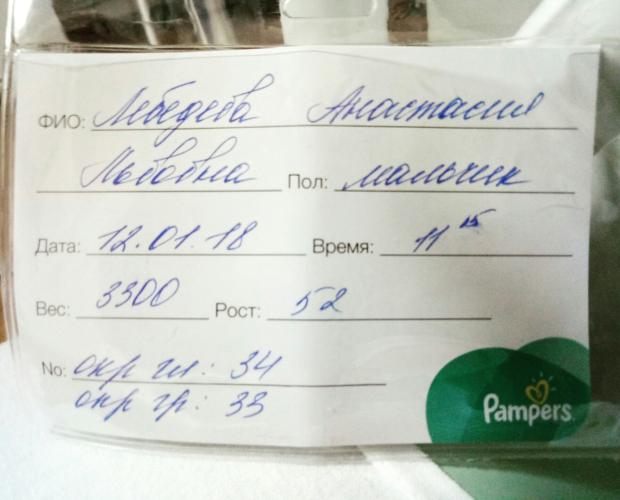 ФИО: Лебедева Анастасия
Львовна Пол: мальчик
Дата: 12.01.18 Время: 11 15
Вес: 3300 Рост: 52
No: окр гл: 34
окр гр: 33
Pampers